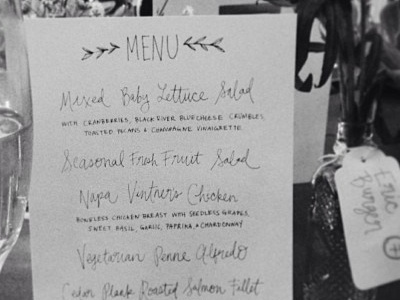 MENU
Mixed Baby Lettuce Salad
WITH CRANBERRIES, BLACK RIVER BLUE CHEESE CRUMBLES,
TOASTED PECANS & CHAMPAGNE VINAIGRETTE
Seasonal Fresh Fruit Salad
Napa Vintner's Chicken
BONELESS CHICKEN BREAST WITH SEEDLESS GRAPES,
SWEET BASIL, GARLIC, PAPRIKA, & CHARDONNAY
Vegetarian Penne Alfredo
Cedar Plank Roasted Salmon Fillet
Eric